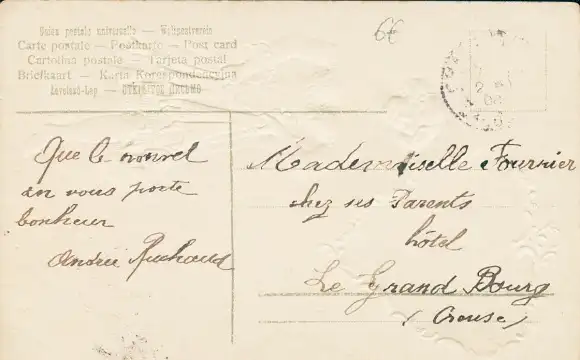 Union postale universelle — Weltpostverein
Carte postale — Postkarte — Post card
Cartolina postale — Tarjeta postal
Briefkaart — Karta Korespondencyjna
Levelező-Lap — ОТКРЫТОЕ ПИСЬМО
6€
Que le nouvel
an vous porte
bonheur
Andrée Ruchaud
Mademoiselle Fournier
chez ses Parents
hôtel
Le Grand Bourg
(Creuse)